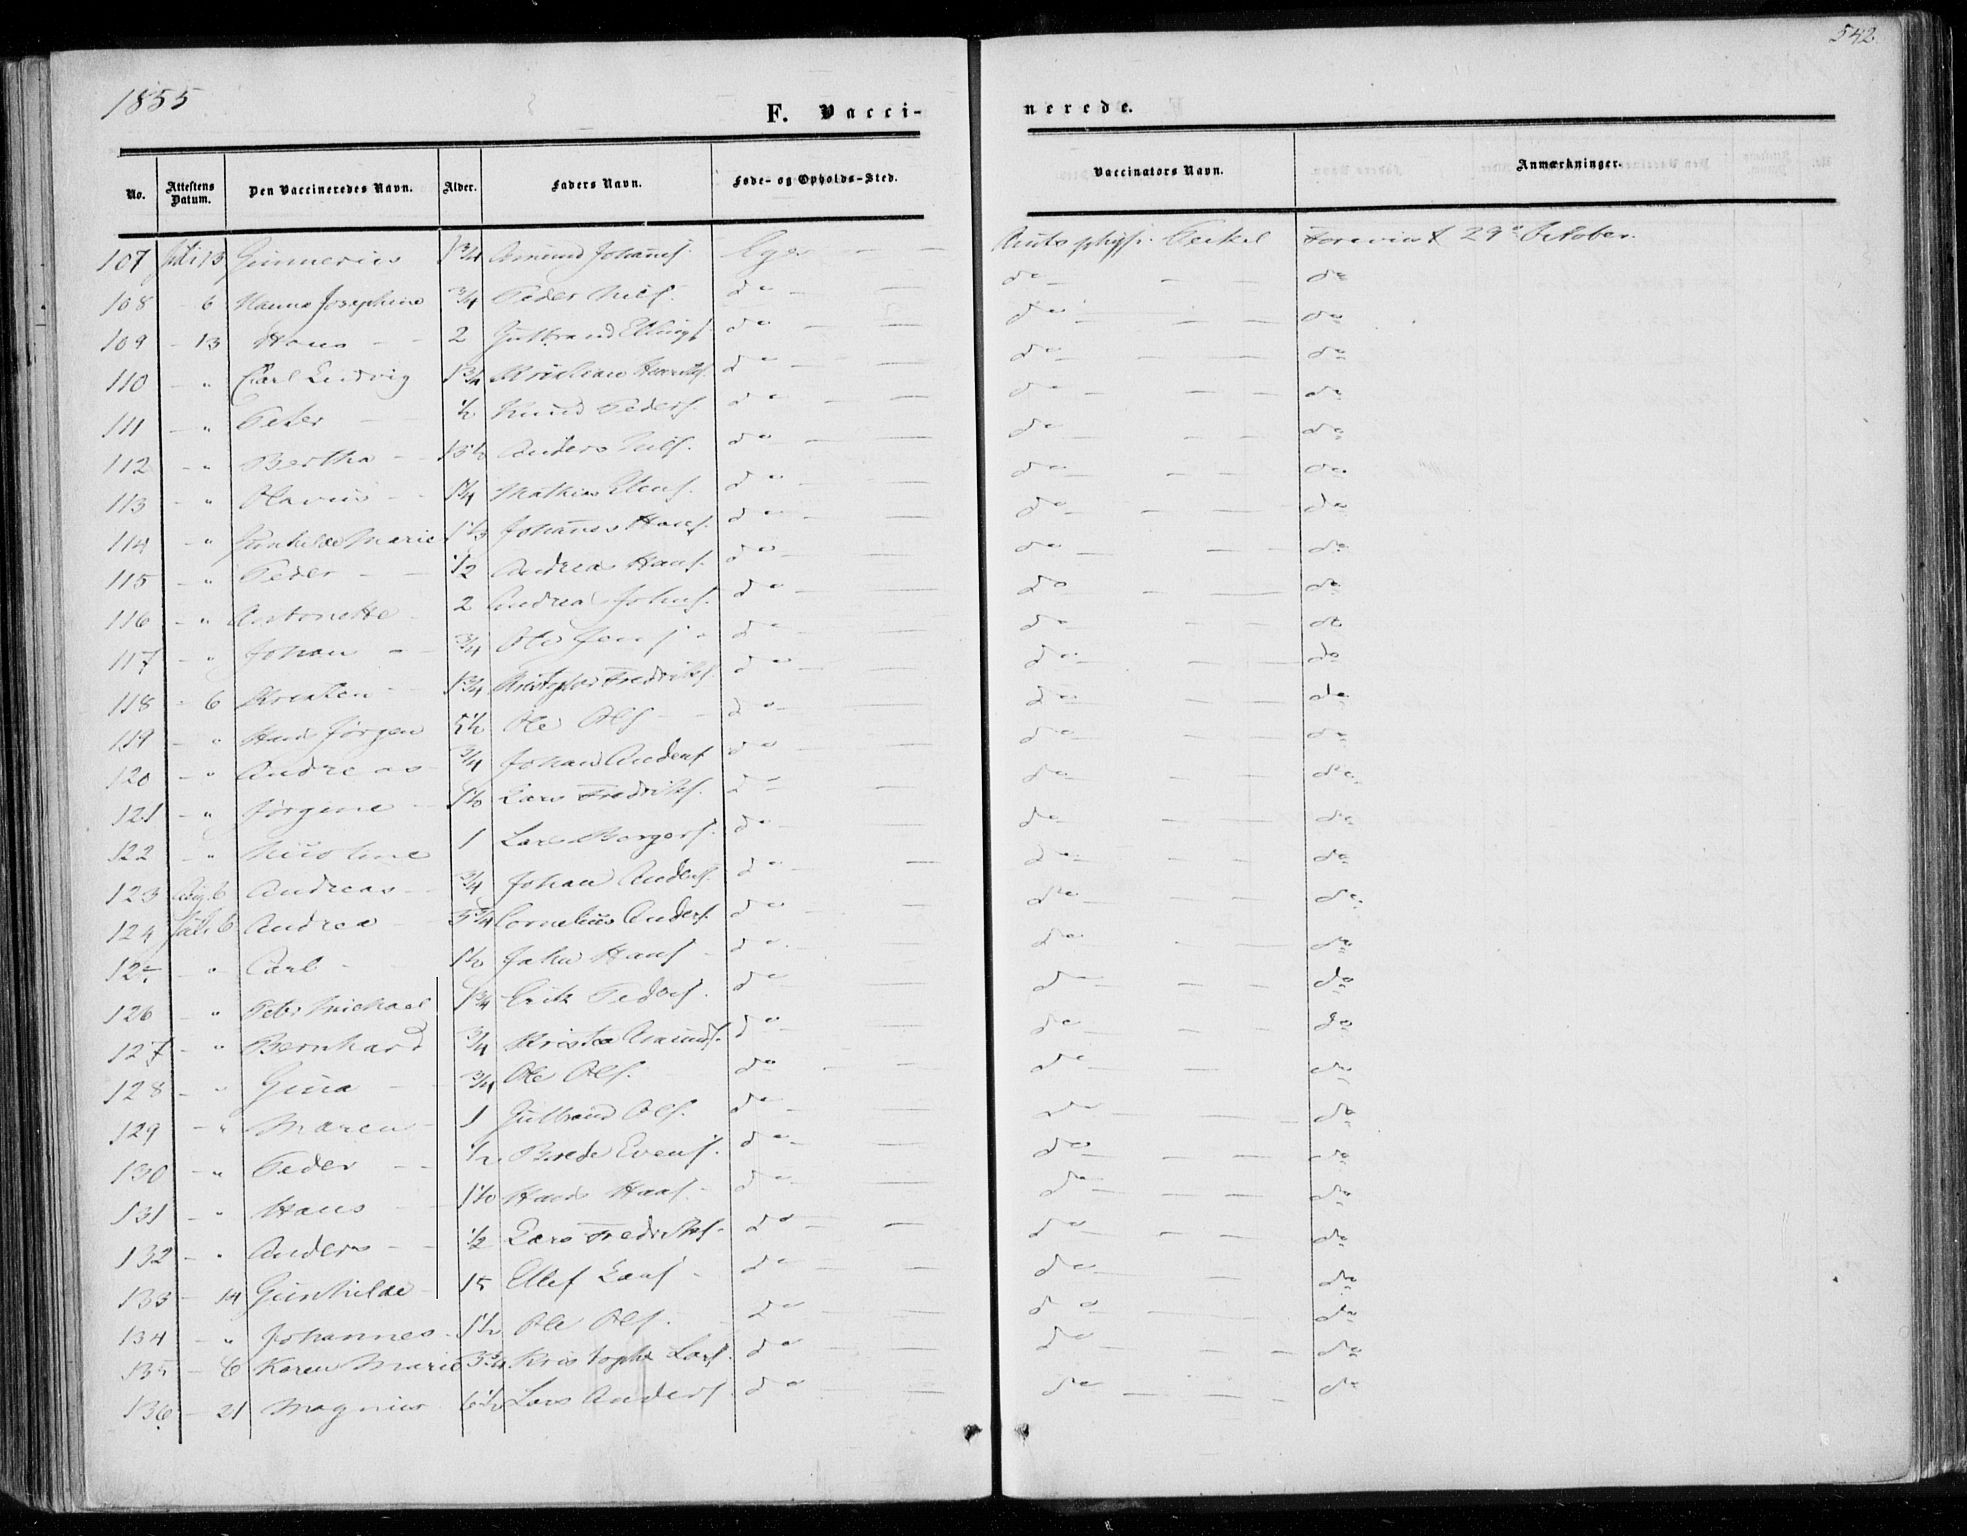 1855
542
F. Vacci-nerede.
No. Attestens Datum. Den Vaccineredes Navn. Alder. Faders Navn. Føde- og Opholds-Sted. Vaccinators Navn. Anmærkninger.
107 Juli 13 Gunnerius 1 3/4 Amund Johans. Eger — 29de October.
108 - 6 Hanna Josephine 3/4 Peder Nils. do — do — do
109 - 13 Hans 2 Gulbrand Ellings. do — do — do
110 - " Carl Ludvig 1 3/4 Kristian do — do — do
111 - " Peter 1/2 Knud Peders. do — do — do
112 - " Bertha 13 1/2 Anders Nils. do — do — do
113 - " Olavus 1 3/4 Mathias do — do — do
114 - " Gunhilde Marie 1 1/3 Johannes Hans. do — do — do
115 - " Peder 1/2 Andreas Hans. do — do — do
116 - " Antonette 2 Andreas Johns. do — do — do
117 - " Johan 3/4 Ole Jens. do — do — do
118 - 6 Kristen 1 3/4 Kristopher Fredriks. do — do — do
119 - " Hans Jørgen 5 1/2 Ole Ols. do — do — do
120 - " Andreas 3/4 Johan Anders. do — do — do
121 - " Jørgine 1 1/2 Lars Fredriks. do — do — do
122 - " Nicoline 1 Lars Borgers. do — do — do
123 Aug 6 Andreas 3/4 Johan Anders. do — do — do
124 Juli 6 Andrea 5 3/4 Cornelius Anders. do — do — do
125 - " Carl 1 1/2 John Hans. do — do — do
126 - " Peter Michael 1 3/4 Erik Peders. do — do — do
127 - " Bernhard 3/4 Kristen Amunds. do — do — do
128 - " Gina 3/4 Ole Ols. do — do — do
129 - " Maren 1 Gulbrand Ols. do — do — do
130 - " Peder 1/2 Brede Evens. do — do — do
131 - " Hans 1 1/2 Hans Hans. do — do — do
132 - " Anders 1/2 Lars Fredriks. do — do — do
133 - 14 Gunhilde 15 Ellef Lars. do — do — do
134 - " Johannes 1 1/2 Ole Ols. do — do — do
135 - 6 Karen Marie 3 3/4 Kristopher Lars. do — do — do
136 - 21 Magnus 6 1/2 Lars Anders. do — do — do